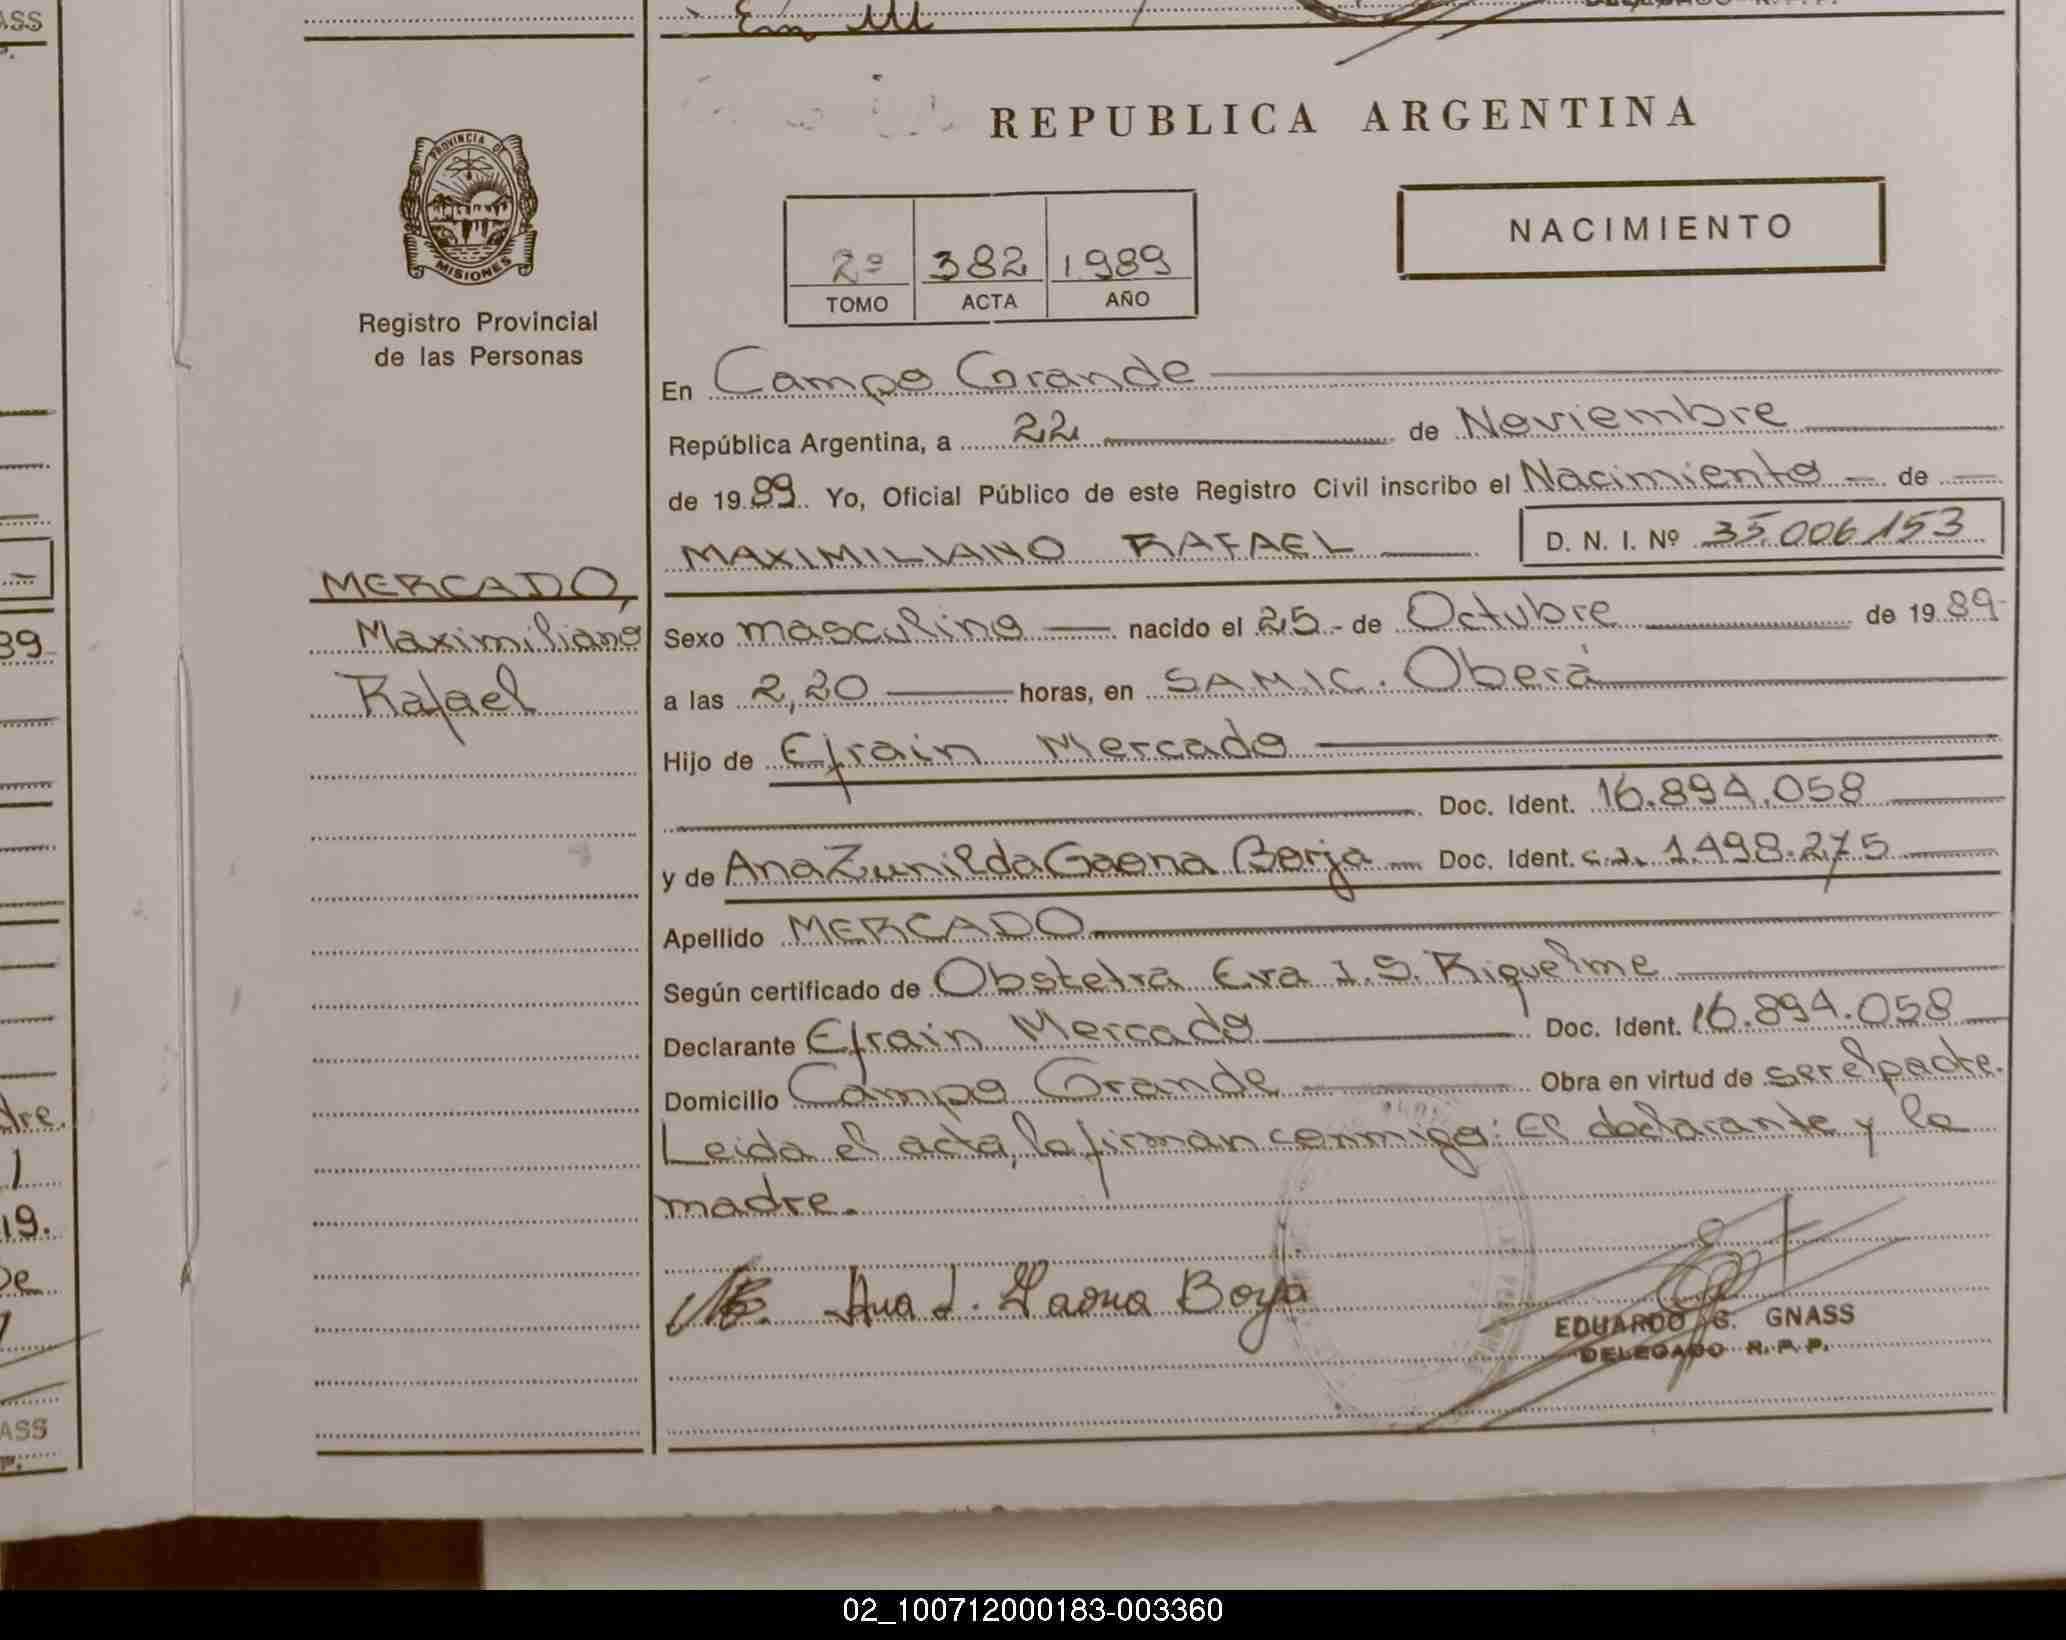 ASS
REPUBLICA ARGENTINA
PROVINCIA DE
MISIONES
Registro Provincial
de las Personas
NACIMIENTO
2º 382 1989
TOMO ACTA AÑO
En Campo Grande
República Argentina, a 22 de Noviembre
de 1989. Yo, Oficial Público de este Registro Civil inscribo el Nacimiento - de
MAXIMILIANO RAFAEL D. N. I. Nº 35.006.153
MERCADO,
Maximiliano
Rafael
Sexo masculino nacido el 25 - de Octubre de 1989-
a las 2,20 horas, en S.A.M.I.C. Oberá
Hijo de Efrain Mercado
Doc. Ident. 16.894.058
y de Ana Zunilda Gaona Borja Doc. Ident. c.i. 1.498.275
Apellido MERCADO
Según certificado de Obstetra Eva I. S. Riquelme
Declarante Efrain Mercado Doc. Ident. 16.894.058
Domicilio Campo Grande Obra en virtud de ser el padre.
Leida el acta, la firman conmigo: El declarante y la
madre.
Ana Z. Gaona Borja
EDUARDO G. GNASS
DELEGADO R. P. P.
02_100712000183-003360